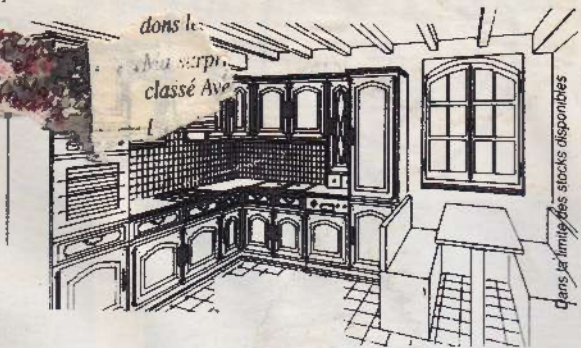 dons le
Ma surpri
classé Ave
Dans la limite des stocks disponibles